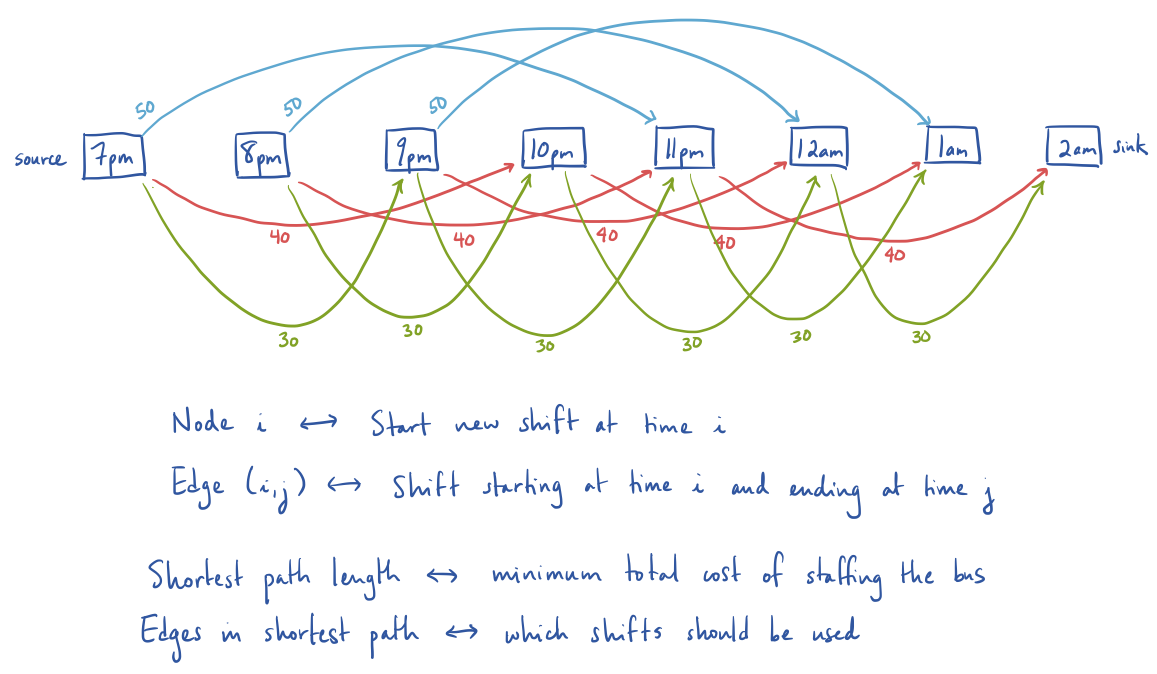 50
50
50
source 7pm 8pm 9pm 10pm 11pm 12am 1am 2am sink
40
40
40
40
40
30
30
30
30
30
30
Node i ↔ Start new shift at time i
Edge (i,j) ↔ Shift starting at time i and ending at time j
Shortest path length ↔ minimum total cost of staffing the bus
Edges in shortest path ↔ which shifts should be used